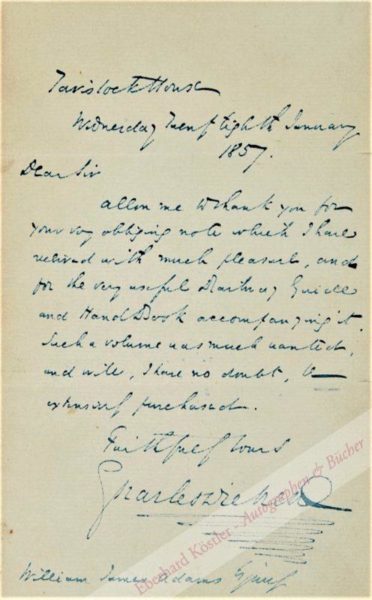 Tavistock House
Wednesday Twenty Eighth January
1857.
Dear Sir
Allow me to thank you for
your very obliging note which I have
received with much pleasure, and
for the very useful Railway Guide
and Hand Book accompanying it.
Such a volume was much wanted,
and will, I have no doubt, be
extensively purchased.
Faithfully Yours
Charles Dickens
William James Adams Esquire
Eberhard Köstler - Autographen & Bücher